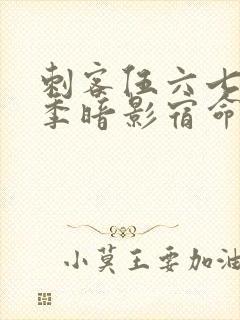 刺客伍六七
季暗影宿命
小莫王要加油